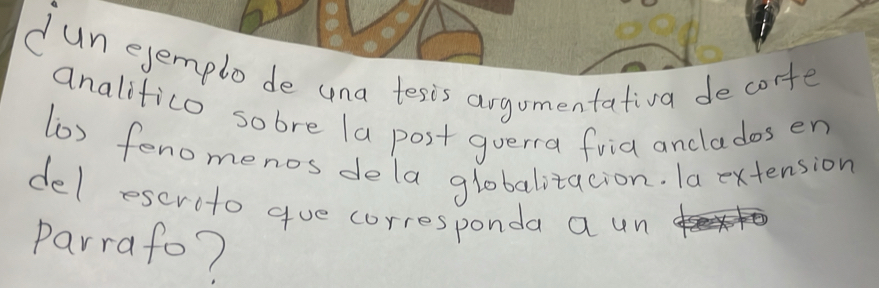 ¿un ejemplo de una tesis argumentativa de corte
analitico sobre la post guerra fria anclados en
los fenomenos de la globalizacion. la extension
del escrito que corresponda a un
parrafo?